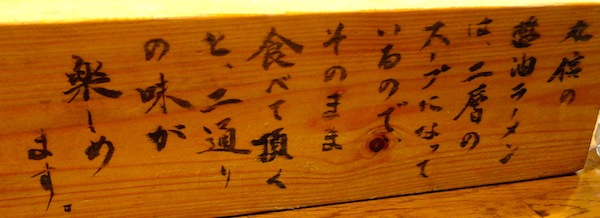 丸信の
醤油ラーメン
は、二層の
スープになって
いるので、
そのまま
食べて頂く
と、二通り
の味が
楽しめ
ます。